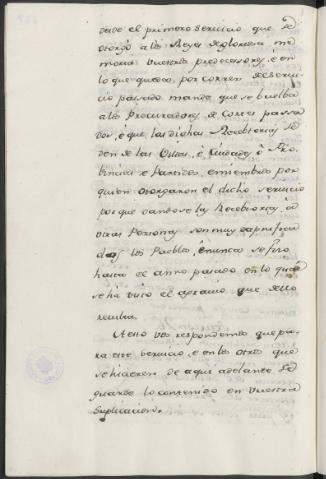 desde el primero servicio que se
otorgó a los Reyes de gloriosa me
moria vuestros predecessores, è en
lo que quedó, por correr del servi
cio passado mande que se buelba
a los Procuradores, de Cortes passa
dos, è que las dichas Recebtorias se
den de las Villas, è Ciudades ò Pro
bincias è Partidos, è miembros por
quien otorgaron el dicho servicio
porque dandose las Recebtorias, à
otras Personas son muy
los Pueblos, è nunca se fizo
hasta el anno pasado en lo qual
se ha visto el agravio que dello
resulta.
A esto vos respondemos que pa
ra este servicio, è en los otros que
se hicieren de aqui adelante se
guarde lo contenido en vuestra
Suplicacion.